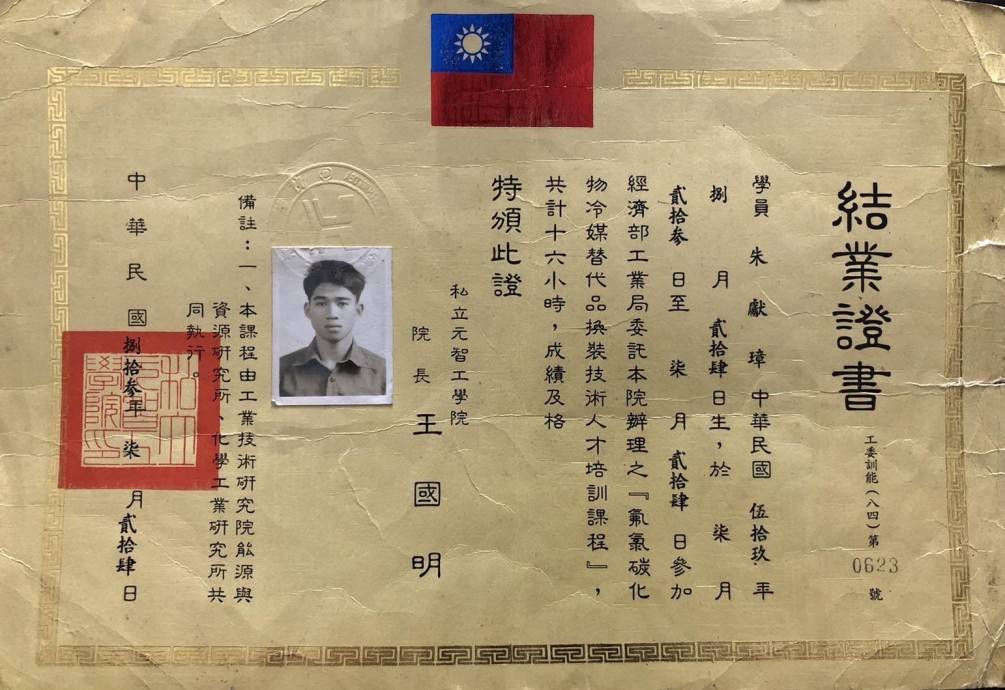 結業證書
工委訓能(八四)第
0623
號
學員 朱獻璋 中華民國 伍拾玖 年
捌 月 貳拾肆 日生,於 柒 月
貳拾參 日至 柒 月 貳拾肆 日參加
經濟部工業局委託本院辦理之『氟氯碳化
物冷媒替代品換裝技術人才培訓課程』,
共計十六小時,成績及格
特頒此證
私立元智工學院
院長 王國明
備註:一、本課程由工業技術研究院能源與
資源研究所、化學工業研究所共
同執行。
中華民國 捌拾參年 柒 月 貳拾肆 日